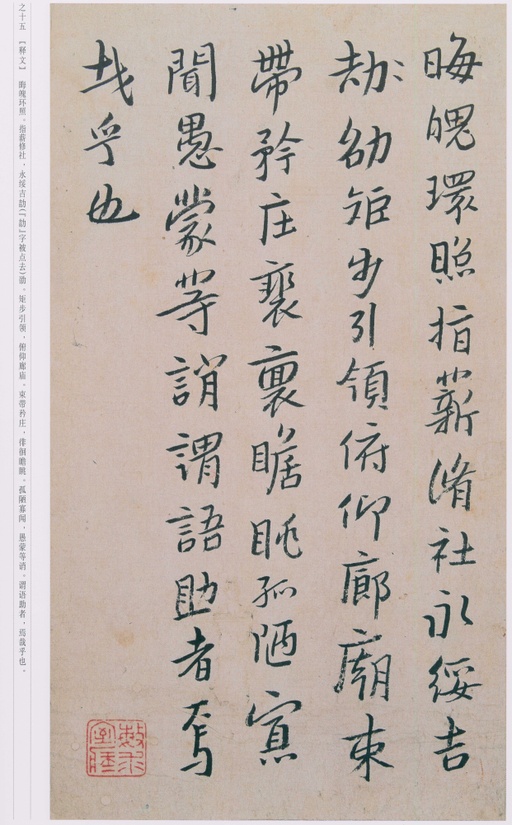 晦魄環照指薪脩社永綏吉
劫劭矩步引領俯仰廊廟束
帶矜庄裵裏瞻眺孤陋寡
聞愚蒙等誚謂語助者焉
哉乎也
之十五 【释文】 晦魄环照。指薪修社，永绥吉劫(「劫」字被点去)劭。矩步引领，俯仰廊庙。束带矜庄，徘徊瞻眺。孤陋寡闻，愚蒙等诮。谓语助者，焉哉乎也。